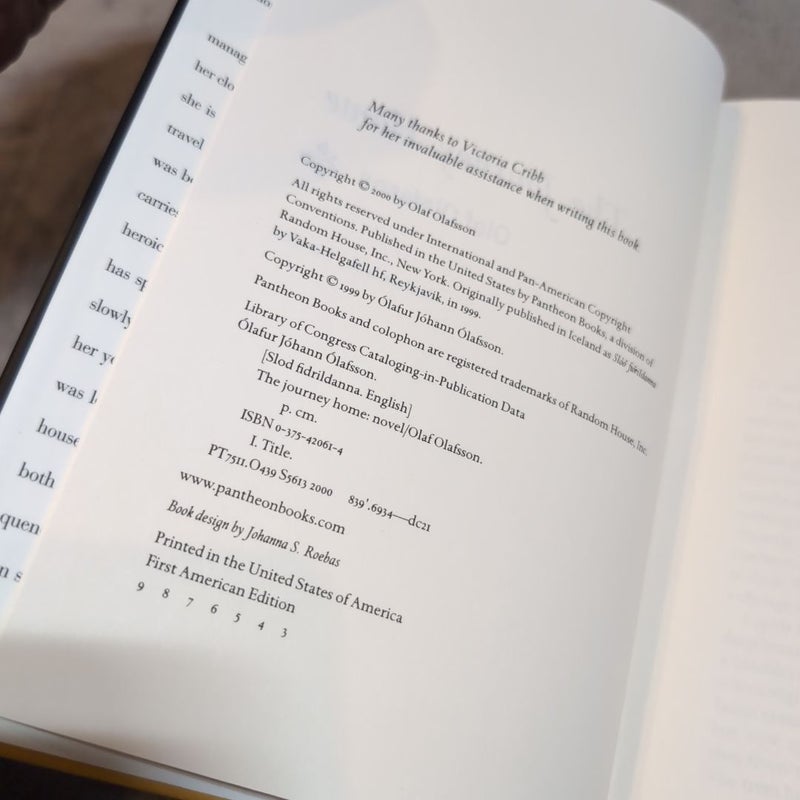 manag
her clo
she is
travel
was be
carries
heroic
has sp
slowly
her yo
was l
house
both
quen
n s
Many thanks to Victoria Cribb
for her invaluable assistance when writing this book
Copyright © 2000 by Olaf Olafsson
All rights reserved under International and Pan-American Copyright
Conventions. Published in the United States by Pantheon Books, a division of
Random House, Inc., New York. Originally published in Iceland as Slóð fiðrildanna
by Vaka-Helgafell hf, Reykjavik, in 1999.
Copyright © 1999 by Ólafur Jóhann Ólafsson.
Pantheon Books and colophon are registered trademarks of Random House, Inc.
Library of Congress Cataloging-in-Publication Data
Ólafur Jóhann Ólafsson.
[Slod fidrildanna. English]
The journey home: novel/Olaf Olafsson.
p. cm.
ISBN 0-375-42061-4
I. Title.
PT7511.O439 S5613 2000 839'.6934—dc21
www.pantheonbooks.com
Book design by Johanna S. Roebas
Printed in the United States of America
First American Edition
9 8 7 6 5 4 3